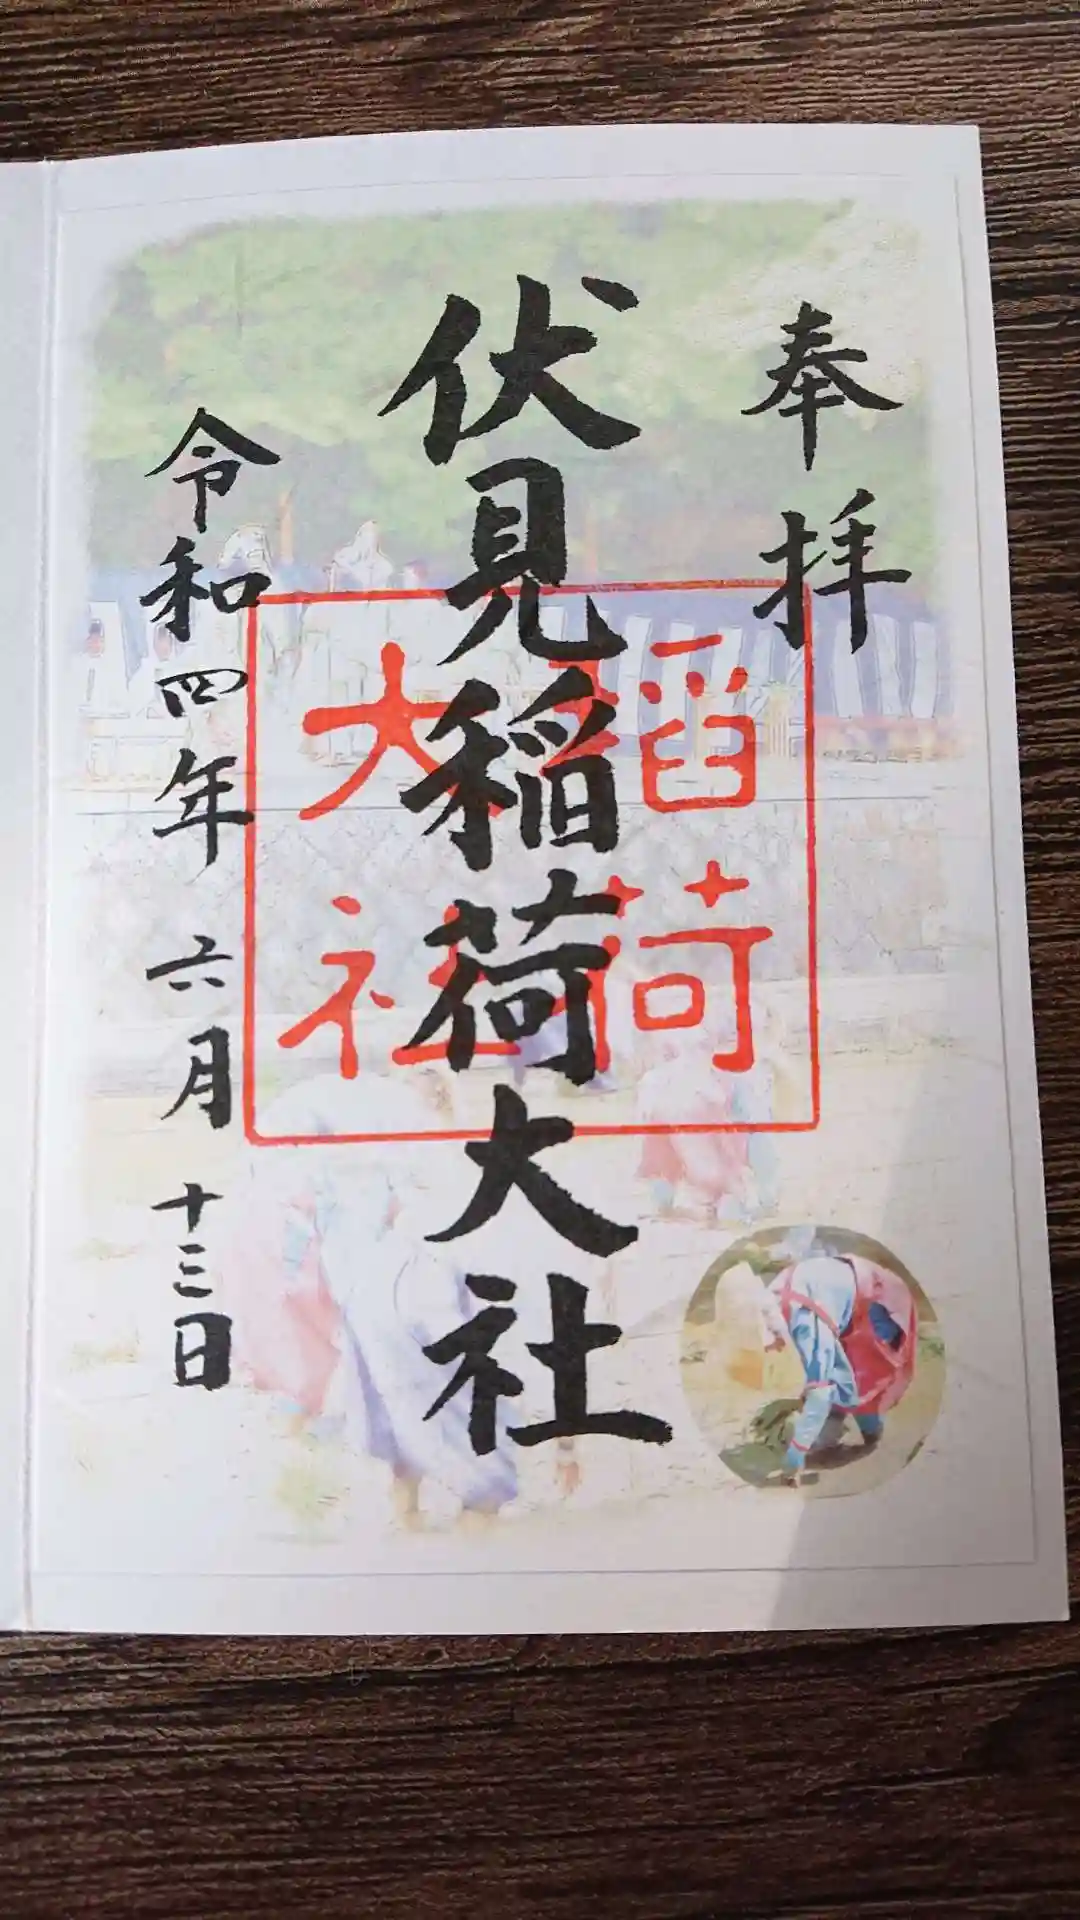 奉拝
伏見稲荷大社
令和四年六月十三日
稲荷
大社